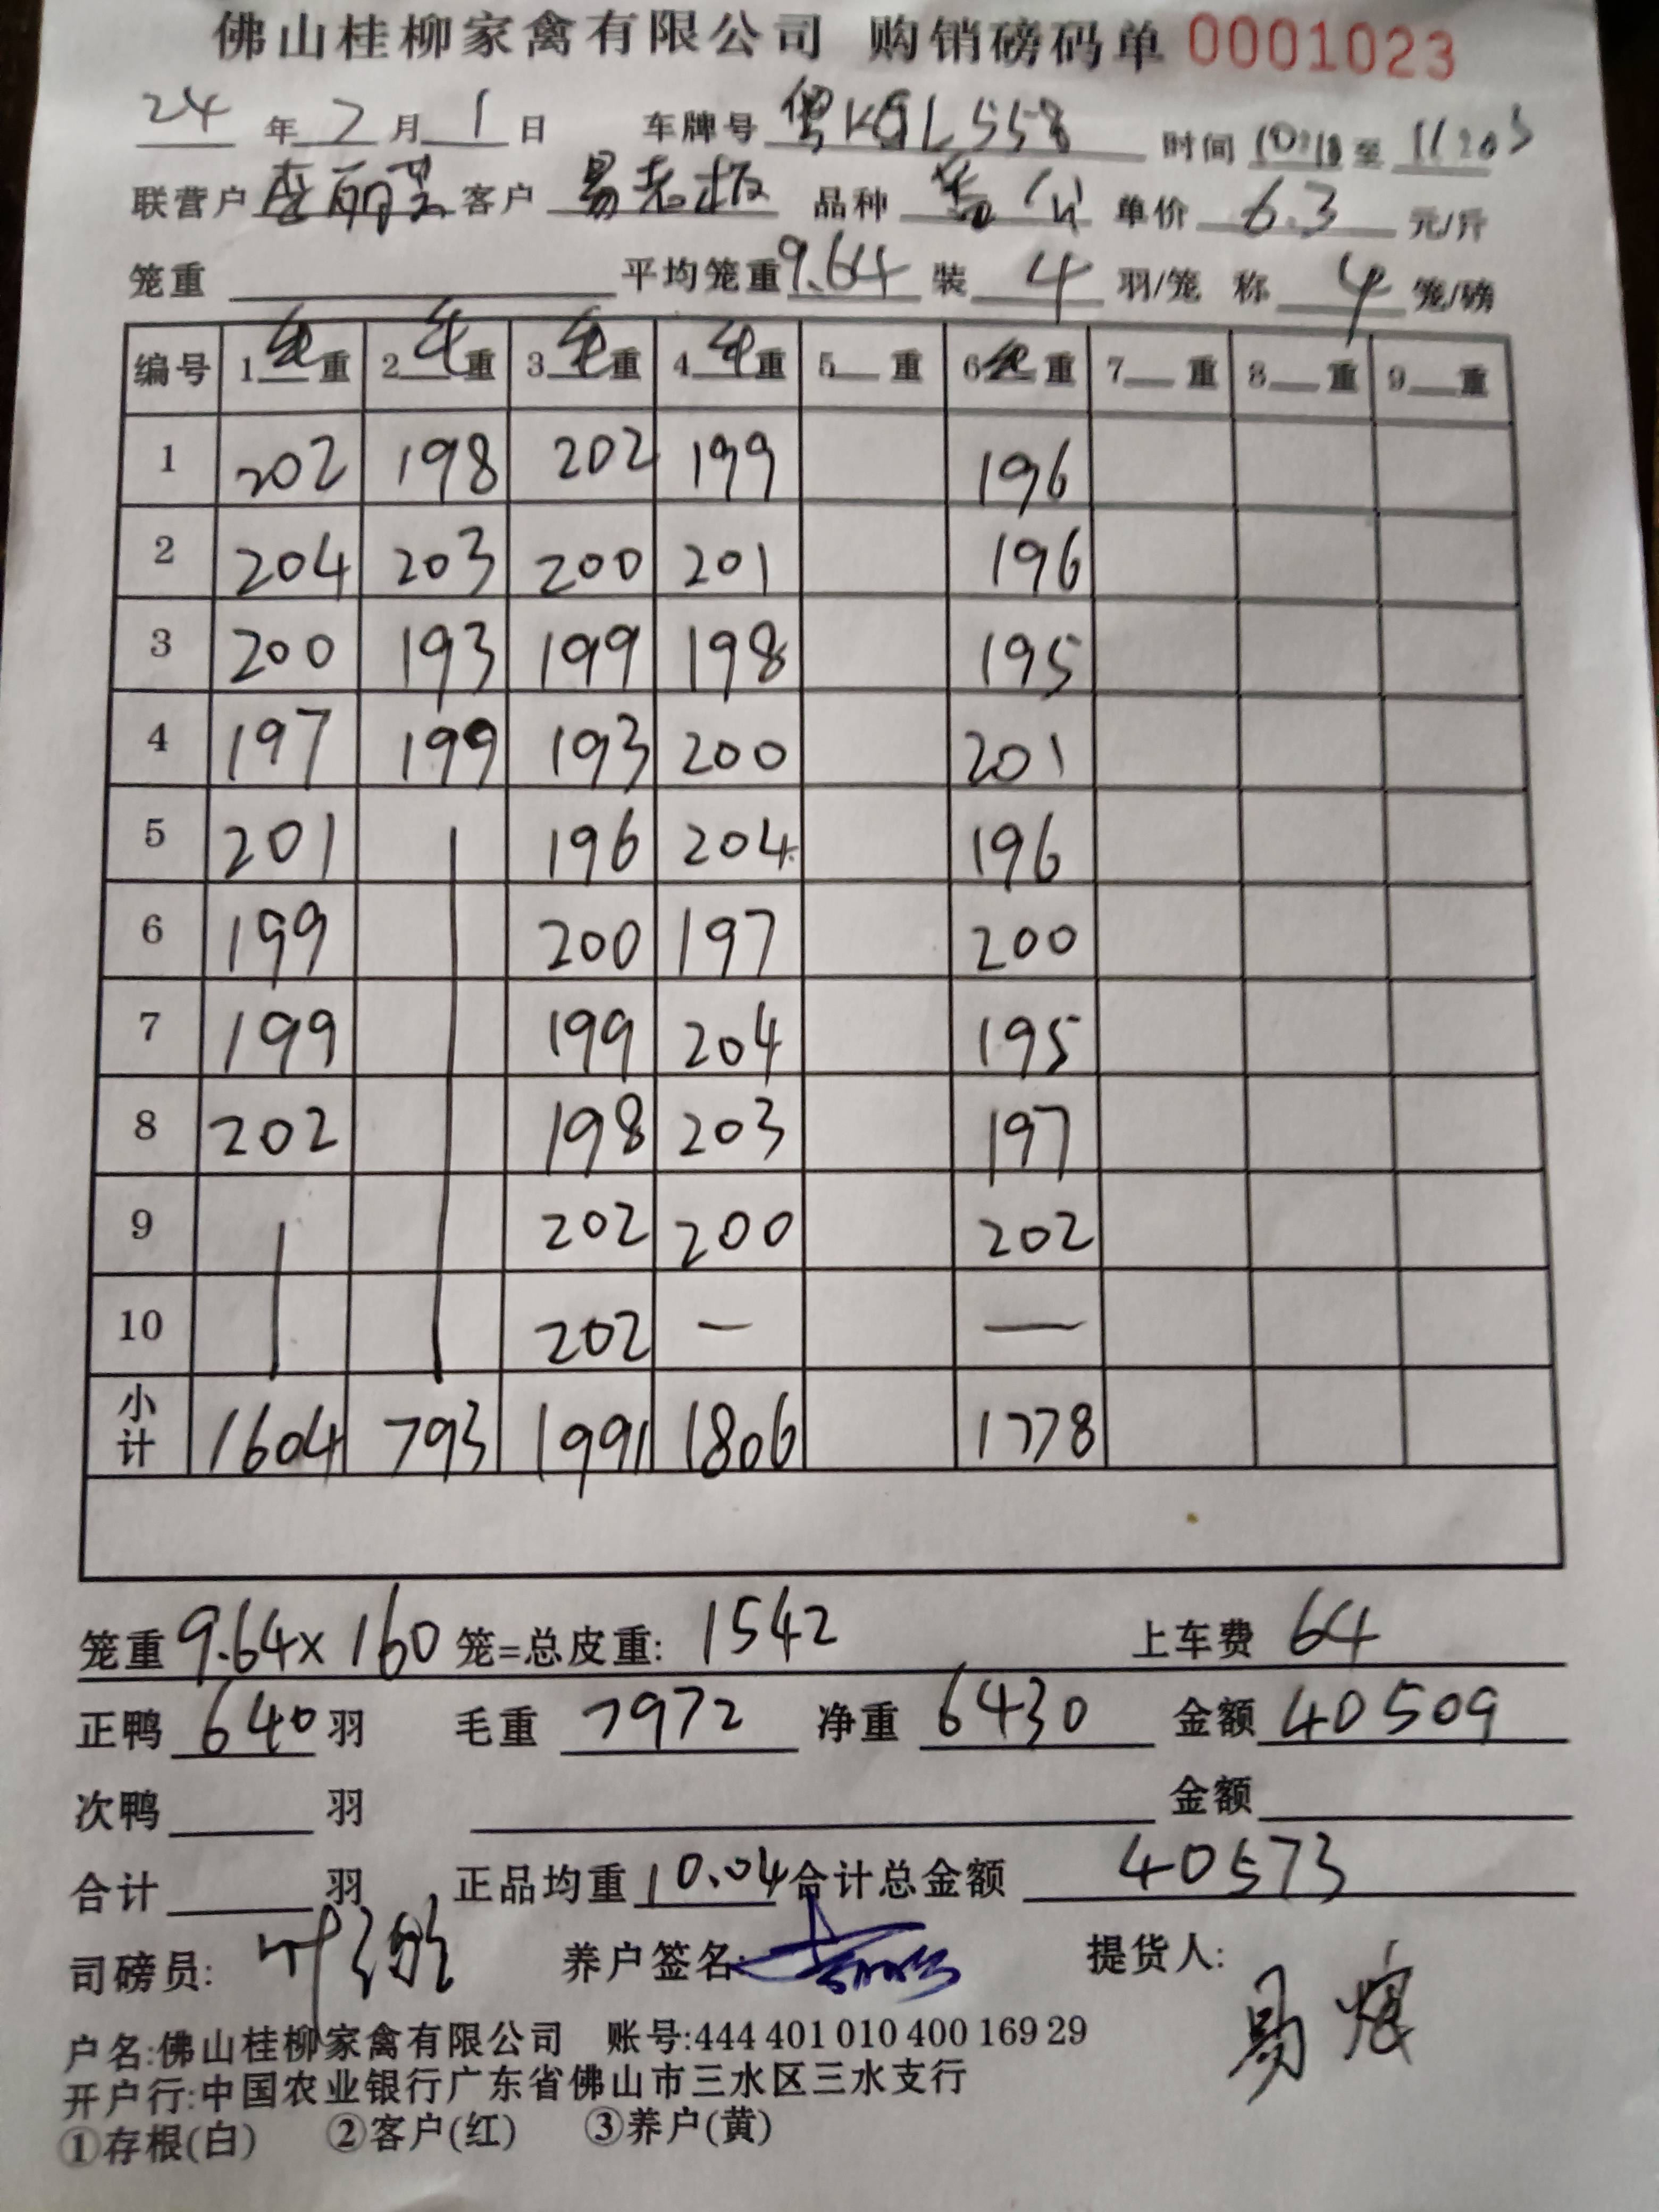 佛山桂柳家禽有限公司 购销磅码单 0001023
24 年 2 月 1 日 车牌号 粤KGL558 时间 10:18 至 11:20
联营户 李丽 客户 易老板 品种 单价 6.3 元/斤
笼重 平均笼重 9.64 装 4 羽/笼 称 4 笼/磅
编号 1 毛 重 2 毛 重 3 毛 重 4 毛 重 5 重 6 毛 重 7 重 8 重 9 重
1 202 198 202 199 196
2 204 203 200 201 196
3 200 193 199 198 195
4 197 199 193 200 201
5 201 196 204 196
6 199 200 197 200
7 199 199 204 195
8 202 198 203 197
9 202 200 202
10 202 — —
小计 1604 793 1991 1806 1778
笼重 9.64×160 笼=总皮重: 1542 上车费 64
正鸭 640 羽 毛重 7972 净重 6430 金额 40509
次鸭 羽 金额
合计 羽 正品均重 10.04 合计总金额 40573
司磅员: 养户签名: 提货人: 易
户名:佛山桂柳家禽有限公司 账号:444 401 010 400 169 29
开户行:中国农业银行广东省佛山市三水区三水支行
①存根(白) ②客户(红) ③养户(黄)